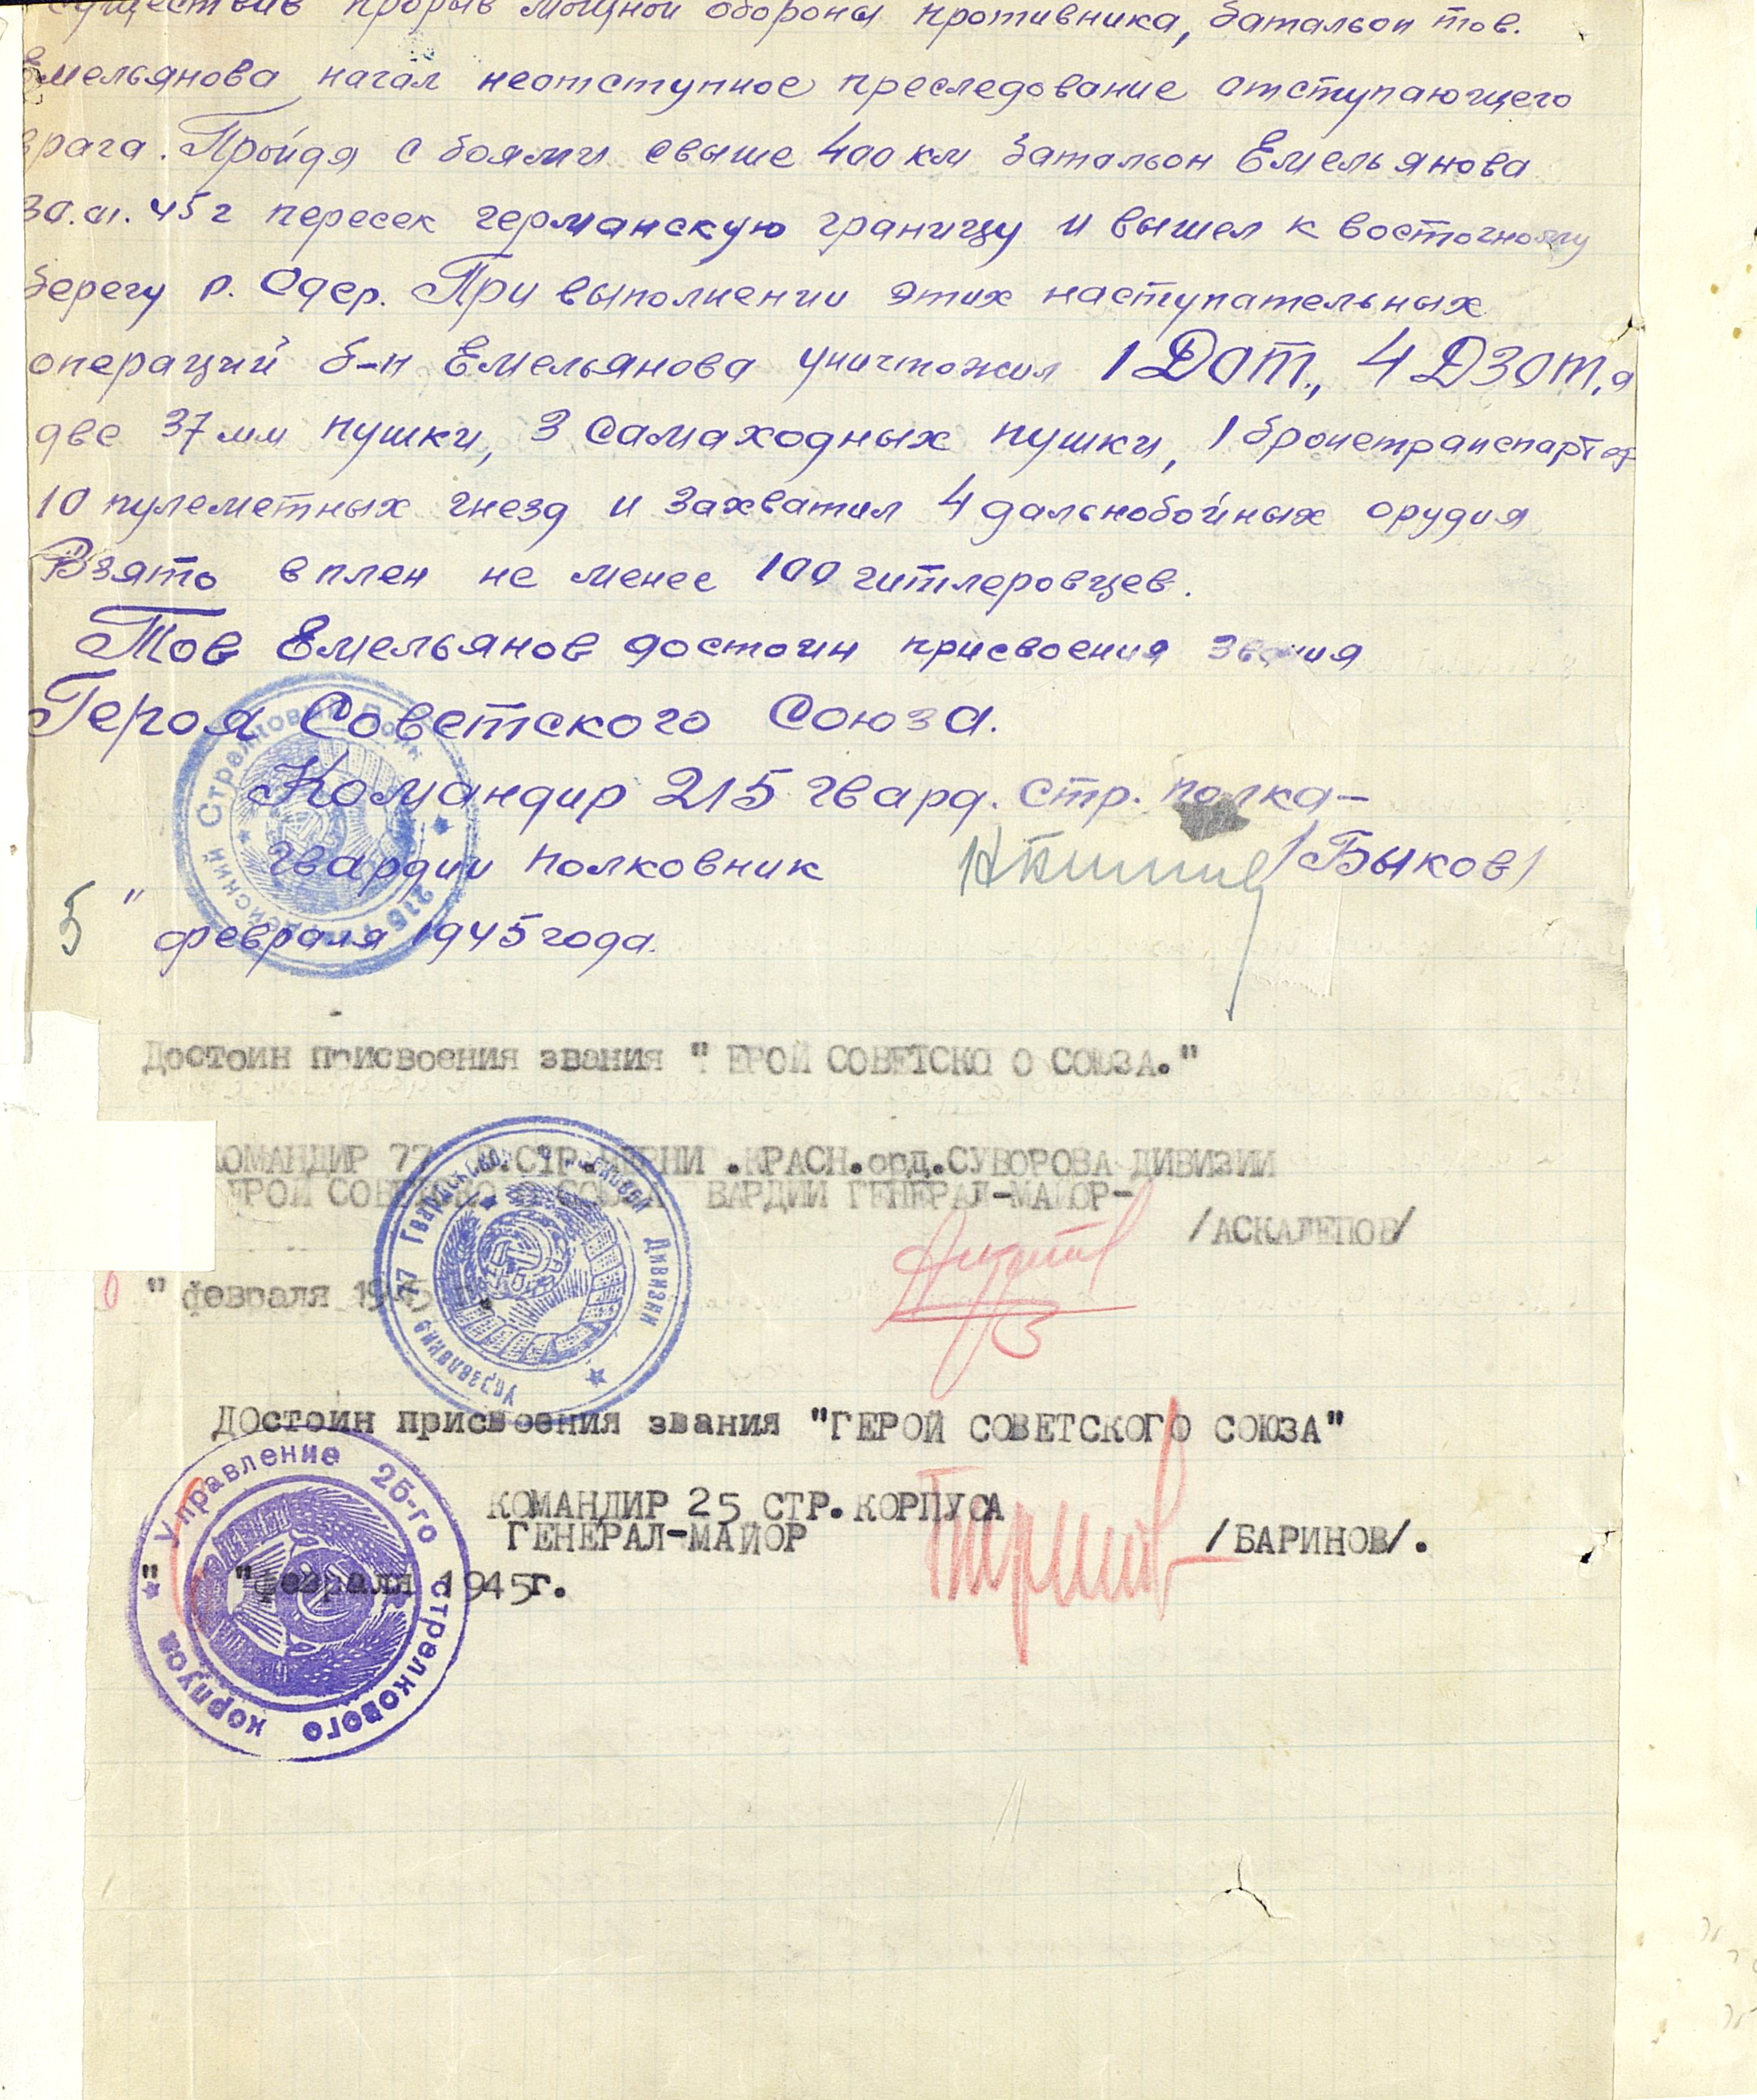 существив прорыв мощной обороны противника, батальон тов.
Емельянова начал неотступное преследование отступающего
врага. Пройдя с боями свыше 400 км батальон Емельянова
30.01.45г пересек германскую границу и вышел к восточному
берегу р. Одер. При выполнении этих наступательных
операций б-н Емельянова уничтожил 1 ДОТ., 4 ДЗОТ,а
две 37 мм пушки, 3 самаходных пушки, 1 бронетранспартер
10 пулеметных гнезд и захватил 4 дальнобойных орудия
Взято в плен не менее 100 гитлеровцев.
Тов Емельянов достоин присвоения звания
Героя Советского Союза.
Командир 215 гвард. стр. полка-
гвардии полковник /Быков/
5 " февраля 1945 года.
Достоин присвоения звания " ЕРОЙ СОВЕТСКО О СОЮЗА."
КОМАНДИР 77 .СТР.ЧЕРНИ .КРАСН.орд.СУВОРОВА ДИВИЗИИ
ЕРОЙ СОВЕТСКО О СОЮЗА ВАРДИИ ГЕНЕРАЛ-МАЙОР-
/АСКАЛЕПОВ/
6 " февраля 1945 г.
Управление 77 Гвардейской Стрелковой Дивизии
Достоин присвоения звания "ГЕРОЙ СОВЕТСКОГО СОЮЗА"
КОМАНДИР 25 СТР.КОРПУСА
ГЕНЕРАЛ-МАЙОР Баринов /БАРИНОВ/.
" "февраля 1945г.
Управление 25-го стрелкового корпуса